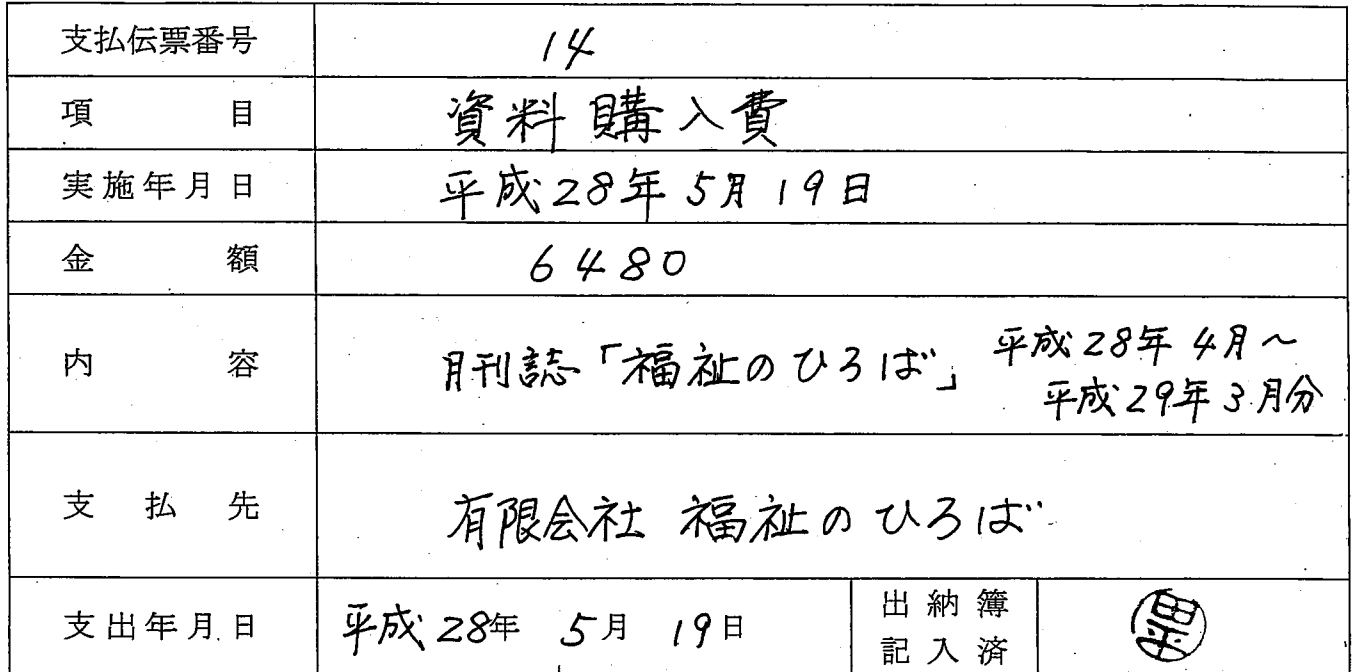 支払伝票番号 14
項目 資料購入費
実施年月日 平成28年5月19日
金額 6480
内容 月刊誌「福祉のひろば」 平成28年4月～
平成29年3月分
支払先 有限会社 福祉のひろば
支出年月日 平成28年 5月 19日 出納簿
記入済